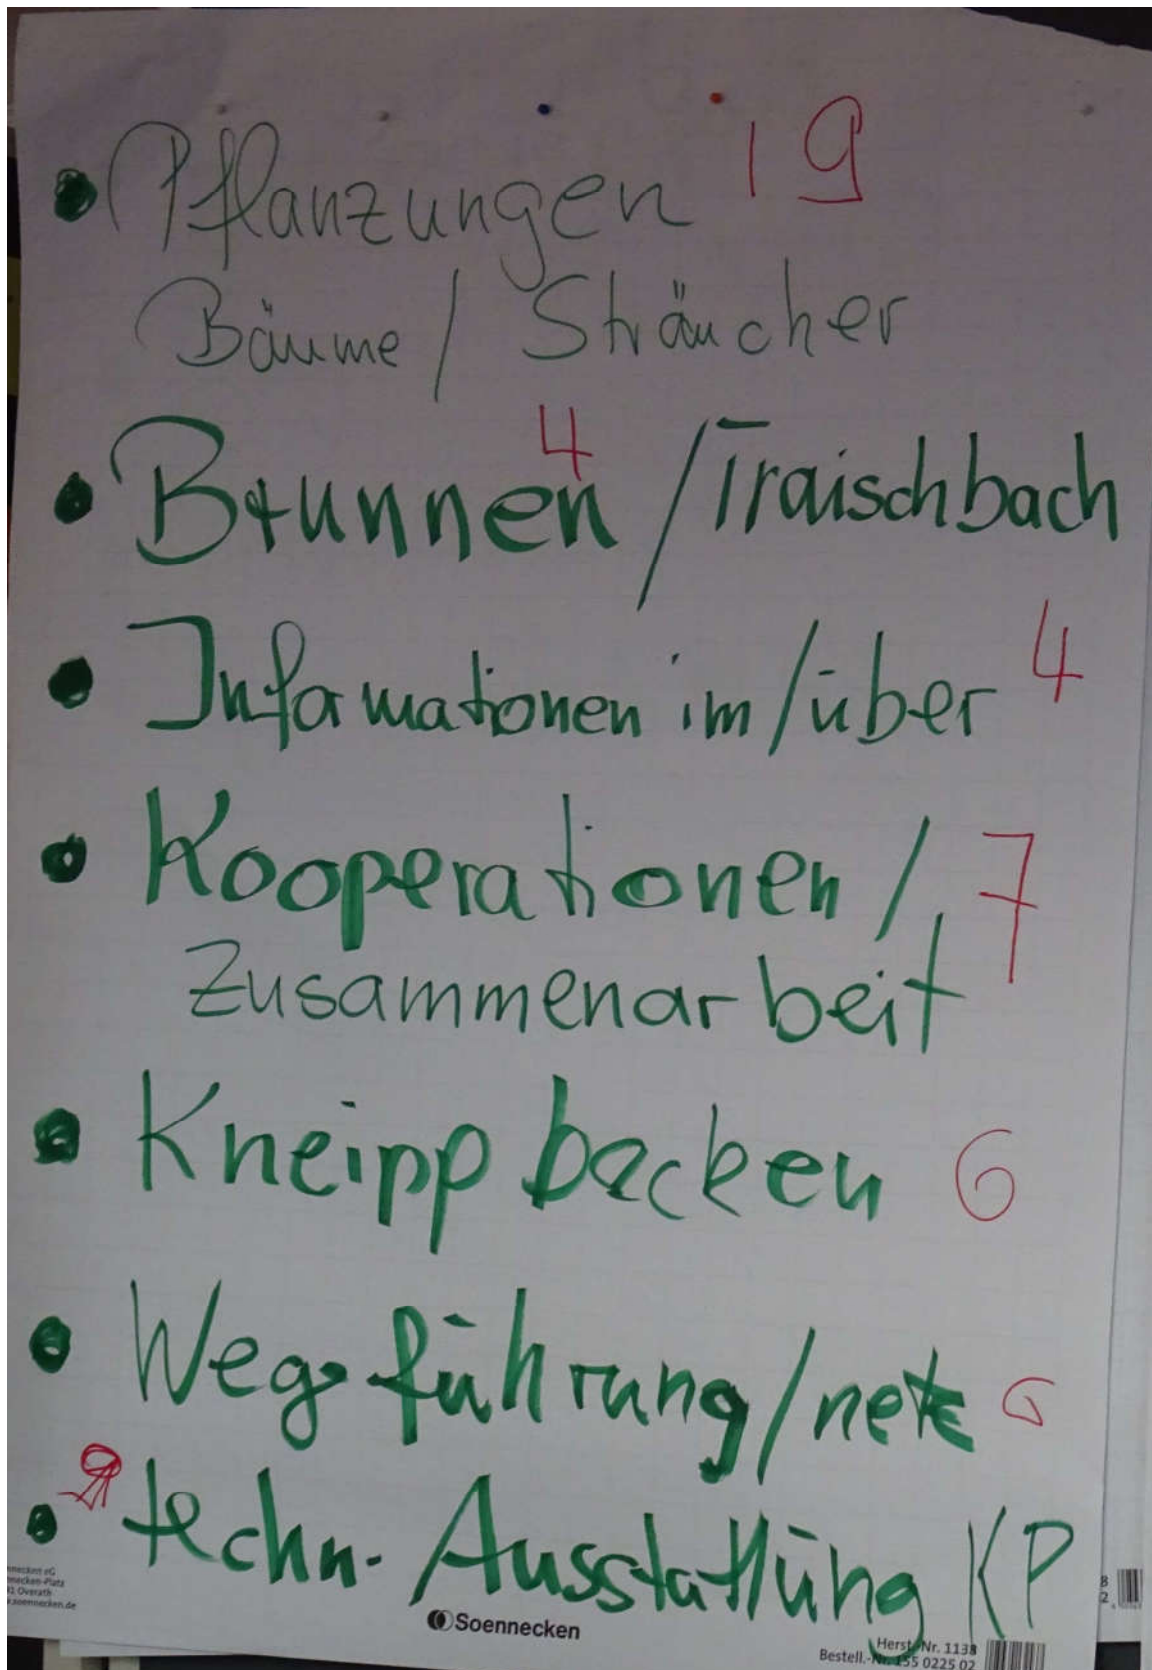 • Pflanzungen 19
Bäume / Sträucher
4
• Brunnen / Traischbach
• Informationen im/über 4
• Kooperationen / 7
Zusammenarbeit
• Kneippbecken 6
• Wegführung/netz 6
• techn. Ausstattung KP
Soennecken
Herst.-Nr. 1138
Bestell.-Nr. 155 0225 02